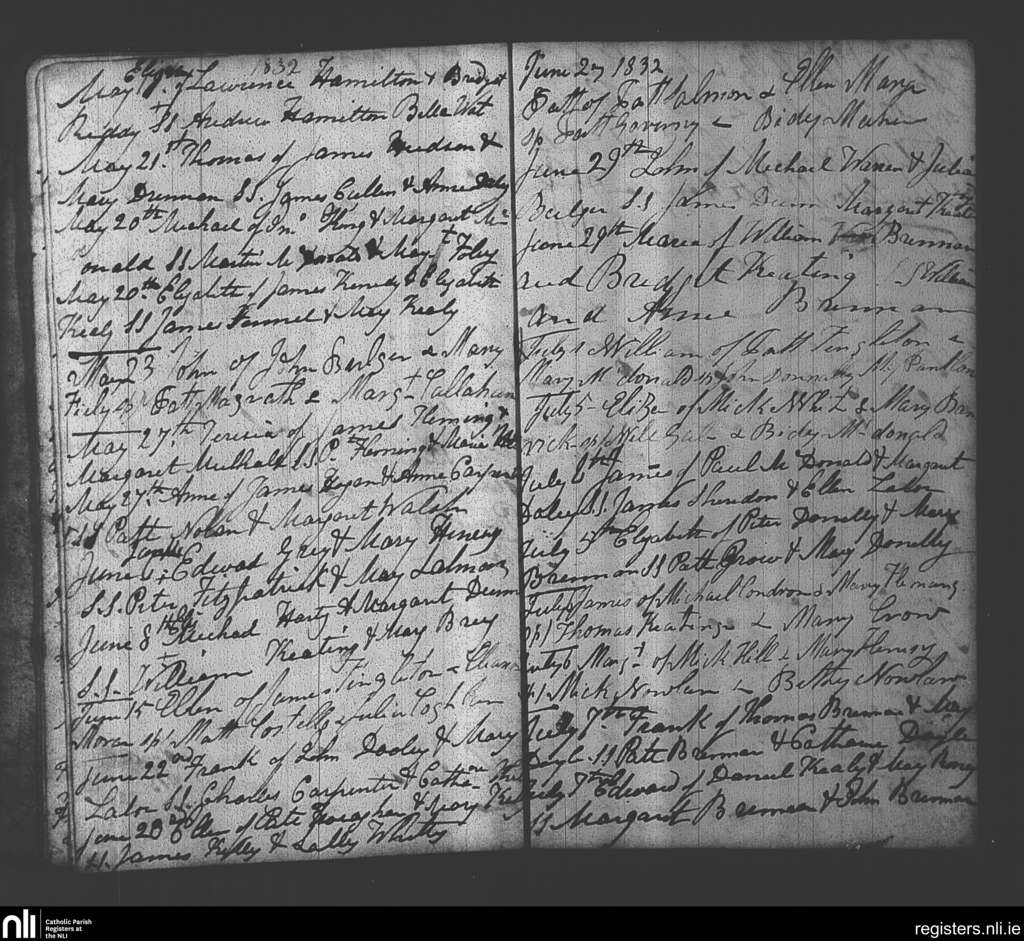 1832
May 1st Elizth of Lawrence Hamilton & Bridget
Reiday SS Andrew Hamilton Bella Wat
May 21st Thomas of James Hudson &
Mary Drennan SS. James Cullen & Anne Daly
May 20th Michael of Jno King & Margaret Mc
onald SS Martin Mc & Mary Foley
May 20th Elizabeth of James Kenedy & Elizabeth
Kealy SS James Fennel & May Kealy
May 23 John of John Bulger & Mary
Patt Magrath & Margt Callahan
May 27th Teresia of James Fleming &
Margaret Mulhall SS P. Fleming & Maria
May 27th Anne of James Regan & Anne Carpent
SS Patt Nolan & Margaret Walsh
June of Edwad Grey & Mary Heneng
S.S. Peter Fitzpatrick & May Lalman
June 8th Michael Harty & Margaret Dunn
S.S. William Keating & May Brey
June 15 Ellen of James Tinghton & Elleanr
Moran sps Matt Costello Julia Coghlan
June 22nd Frank of John Dooley & Mary
Lalor SS. Charles Carpenter & Cathn
June 20 Ellen of Pate & May
SS. James Kelly & Lally Whitty
June 27 1832
Patt of Patt Salmon & Ellen Mara
sp Patt Governy & Bidy Maher
June 29th John of Michael Warren & Julia
Bulger SS James Dunn Margaret
June 29th Maria of William Brennan
and Bridget Keating SS William
and Anne Brennan
July 1 William of Patt Tinghton &
Mary Mc donald sp John Donnelly
July 5 Eliza of Mick White & Mary Bren
Will & Bidy Mc donald
July 6th James of Paul Mc Donald & Margaret
Daley SS. James Sheridon & Ellen Lalor
July 5th Elizabeth of Peter Donelly & Mary
Brennan SS Patt Crow & May Donelly
July James of Michael Condron & Mary Flemang
sps Thomas Keating & Mary Crow
July 6 Margt of Mick Hill & Mary Henesy
sps Mick Nowlan & Bethy Nowlan
July 7th Frank of Thomas Brennan & May
Doyle SS Patt Brennan & Catharine Doyle
July 7th Edward of Daniel Kealy & May
SS Margaret Brennan & John Brennan
nli
Catholic Parish
Registers at
the NLI
registers.nli.ie